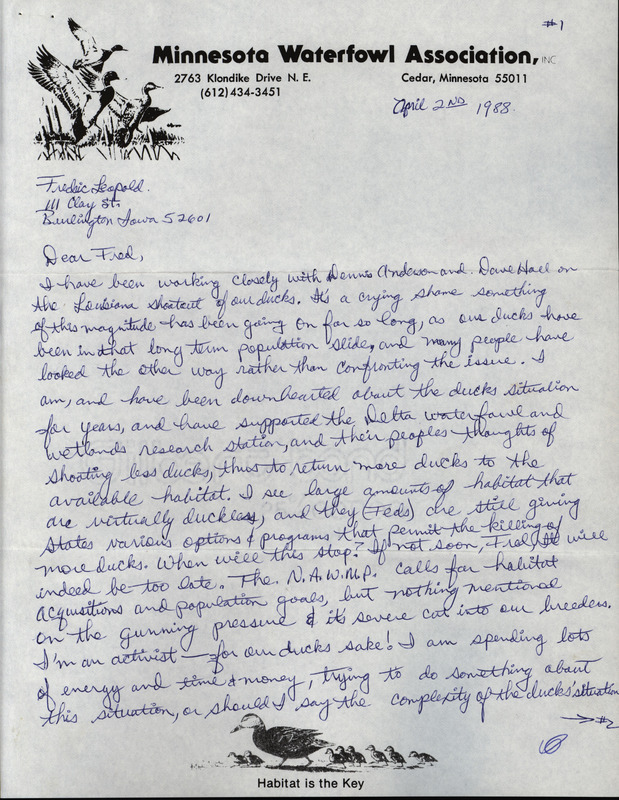 #1
Minnesota Waterfowl Association, INC.
2763 Klondike Drive N. E.
Cedar, Minnesota 55011
(612) 434-3451
April 2ND 1988.
Fredric Leopold.
111 Clay St.
Burlington Iowa 52601
Dear Fred,
I have been working closely with Dennis Anderson and Dave Hall on
the Louisiana shootout of our ducks. It's a crying shame something
of this magnitude has been going on for so long, as our ducks have
been in that long term population slide, and many people have
looked the other way rather than confronting the issue. I
am, and have been downhearted about the ducks situation
for years, and have supported the Delta waterfowl and
wetlands research station, and their peoples thoughts of
shooting less ducks, thus to return more ducks to the
available habitat. I see large amounts of habitat that
are virtually duckless, and they (Feds) are still giving
States various options & programs that permit the killing of
more ducks. When will this stop? If not soon, Fred, it will
indeed be too late. The N.A.W.M.P. calls for habitat
acquisitions and population goals, but nothing mentioned
on the gunning pressure & it's severe cut into our breeders.
I'm an activist — for our ducks sake! I am spending lots
of energy and time & money, trying to do something about
this situation, or should I say the complexity of the ducks' situation
→ #2
Habitat is the Key